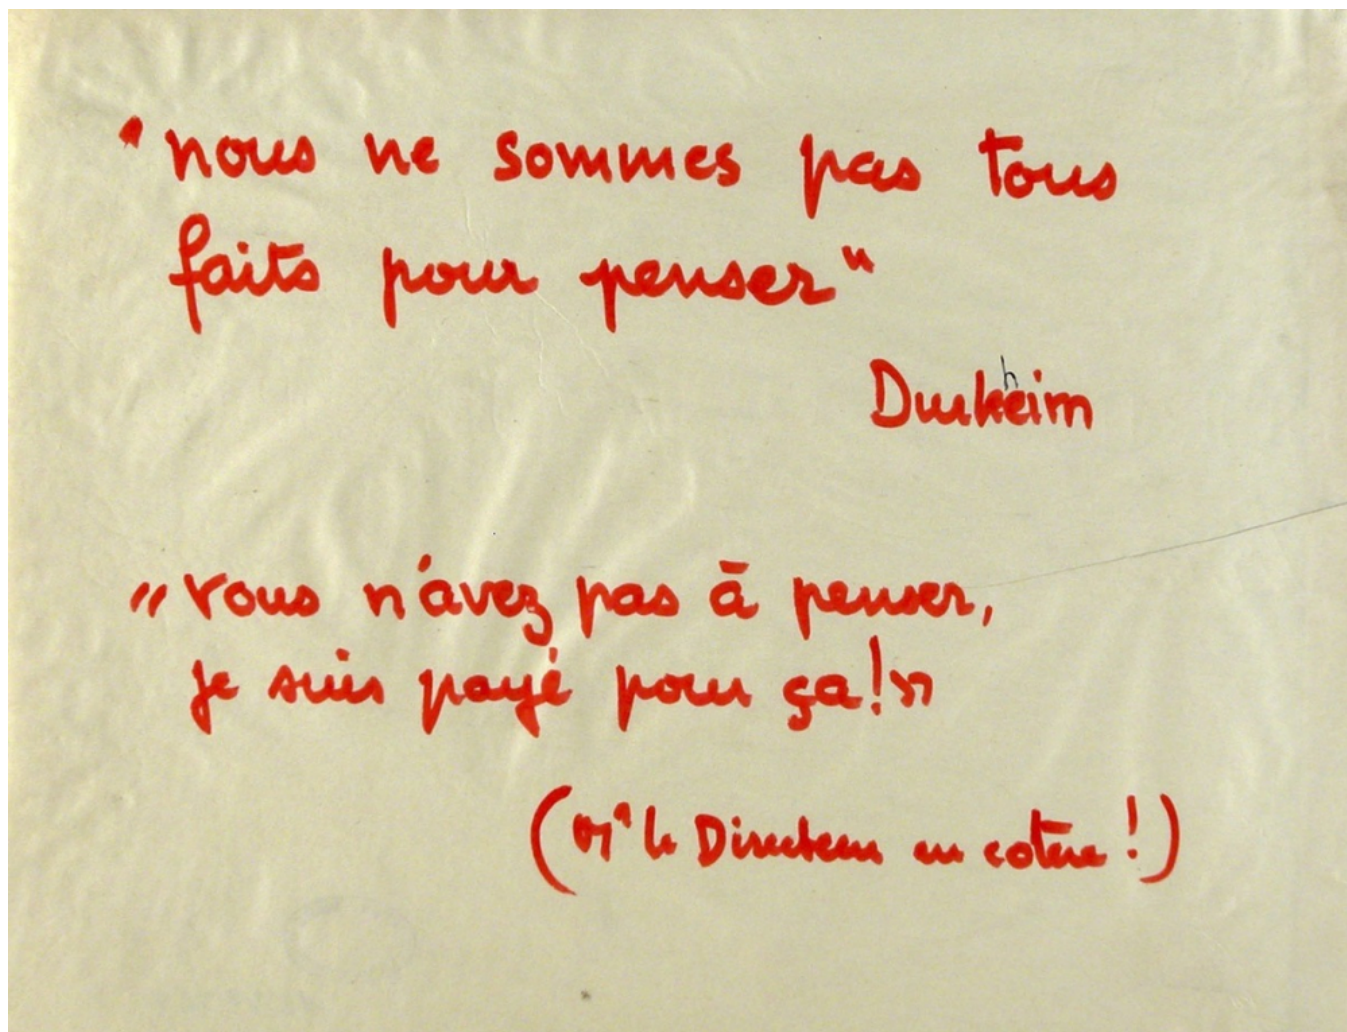 "nous ne sommes pas tous
faits pour penser"
Durkheim
"Vous n'avez pas à penser,
je suis payé pour ça!"
(Mr le Directeur en colère!)